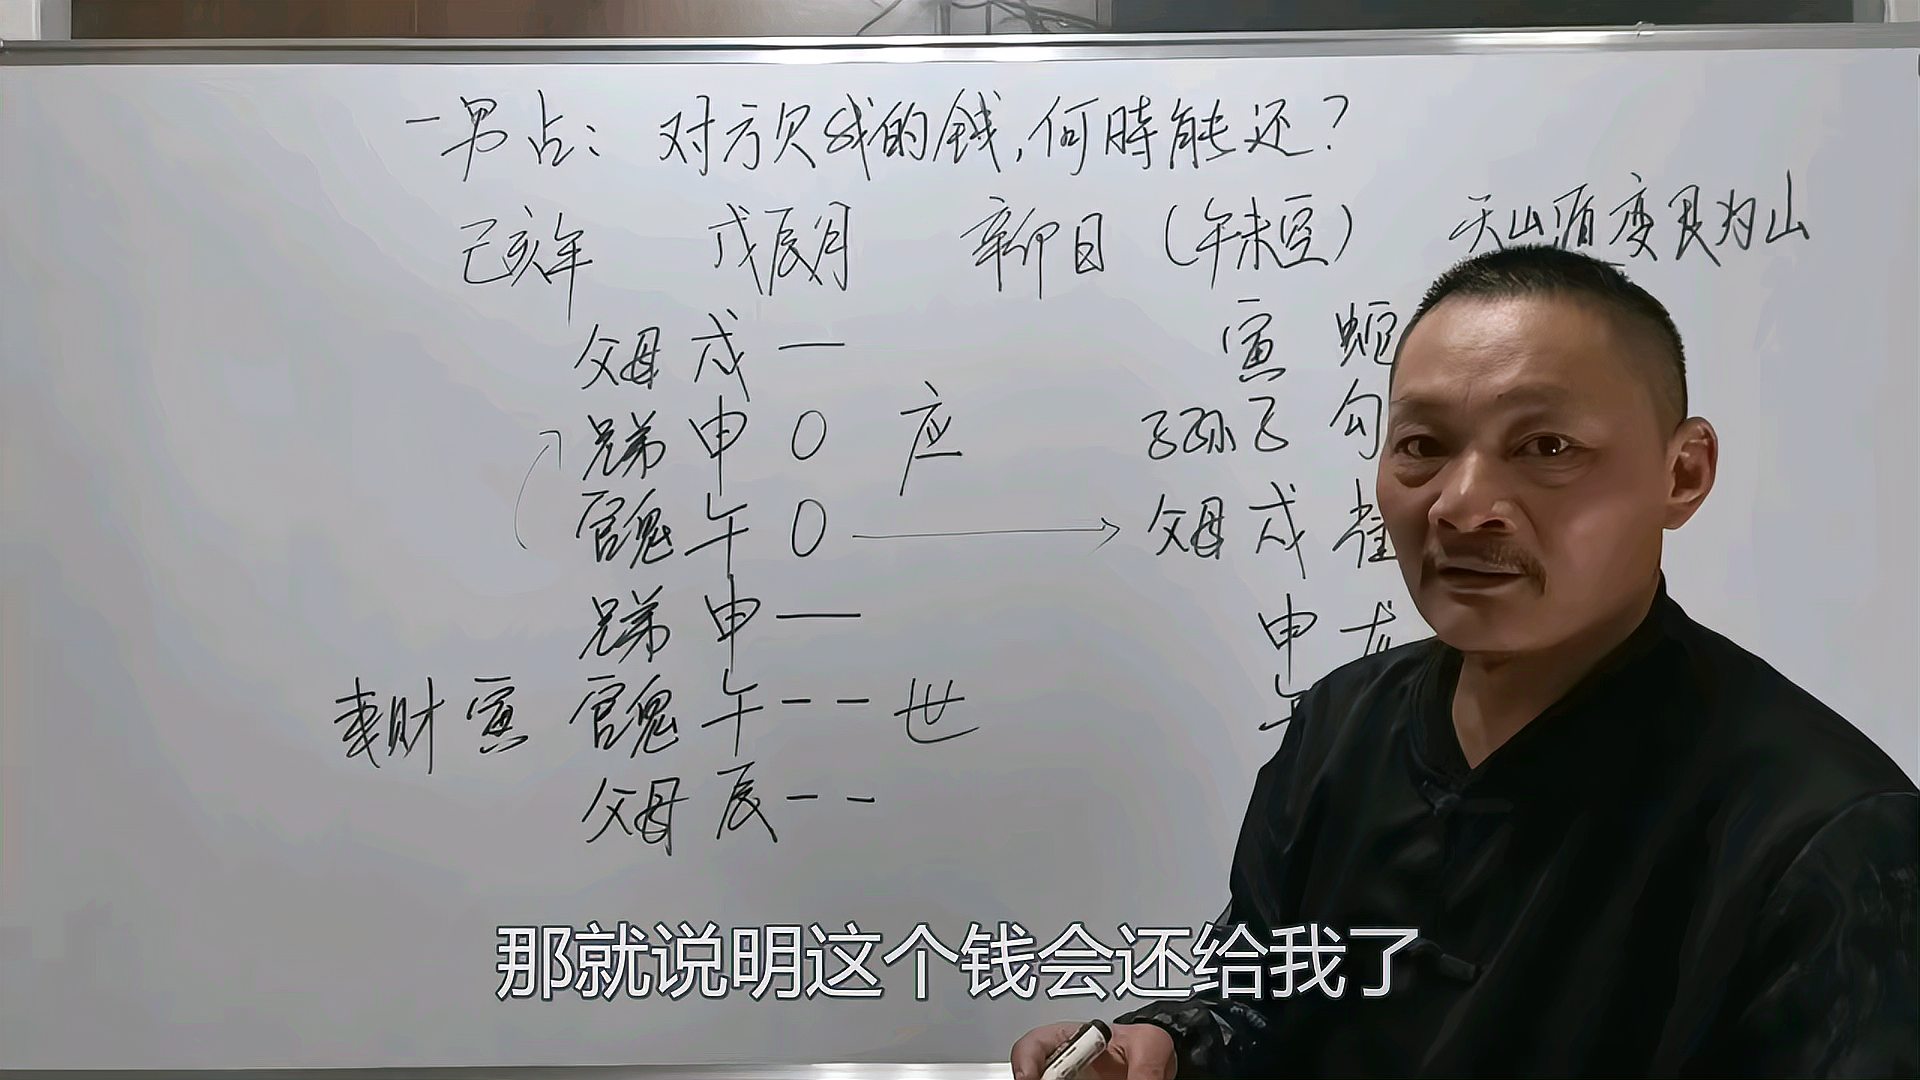 一男占：对方欠我的钱，何時能还？
己亥年 戊辰月 辛卯日（午未空） 天山遁变艮为山
父母戌 — 寅 蛇
兄弟申 O 应 子孙子 勾
官鬼午 O 父母戌 雀
兄弟申 — 申 龙
妻财寅 官鬼午 -- 世 午
父母辰 --
那就说明这个钱会还给我了